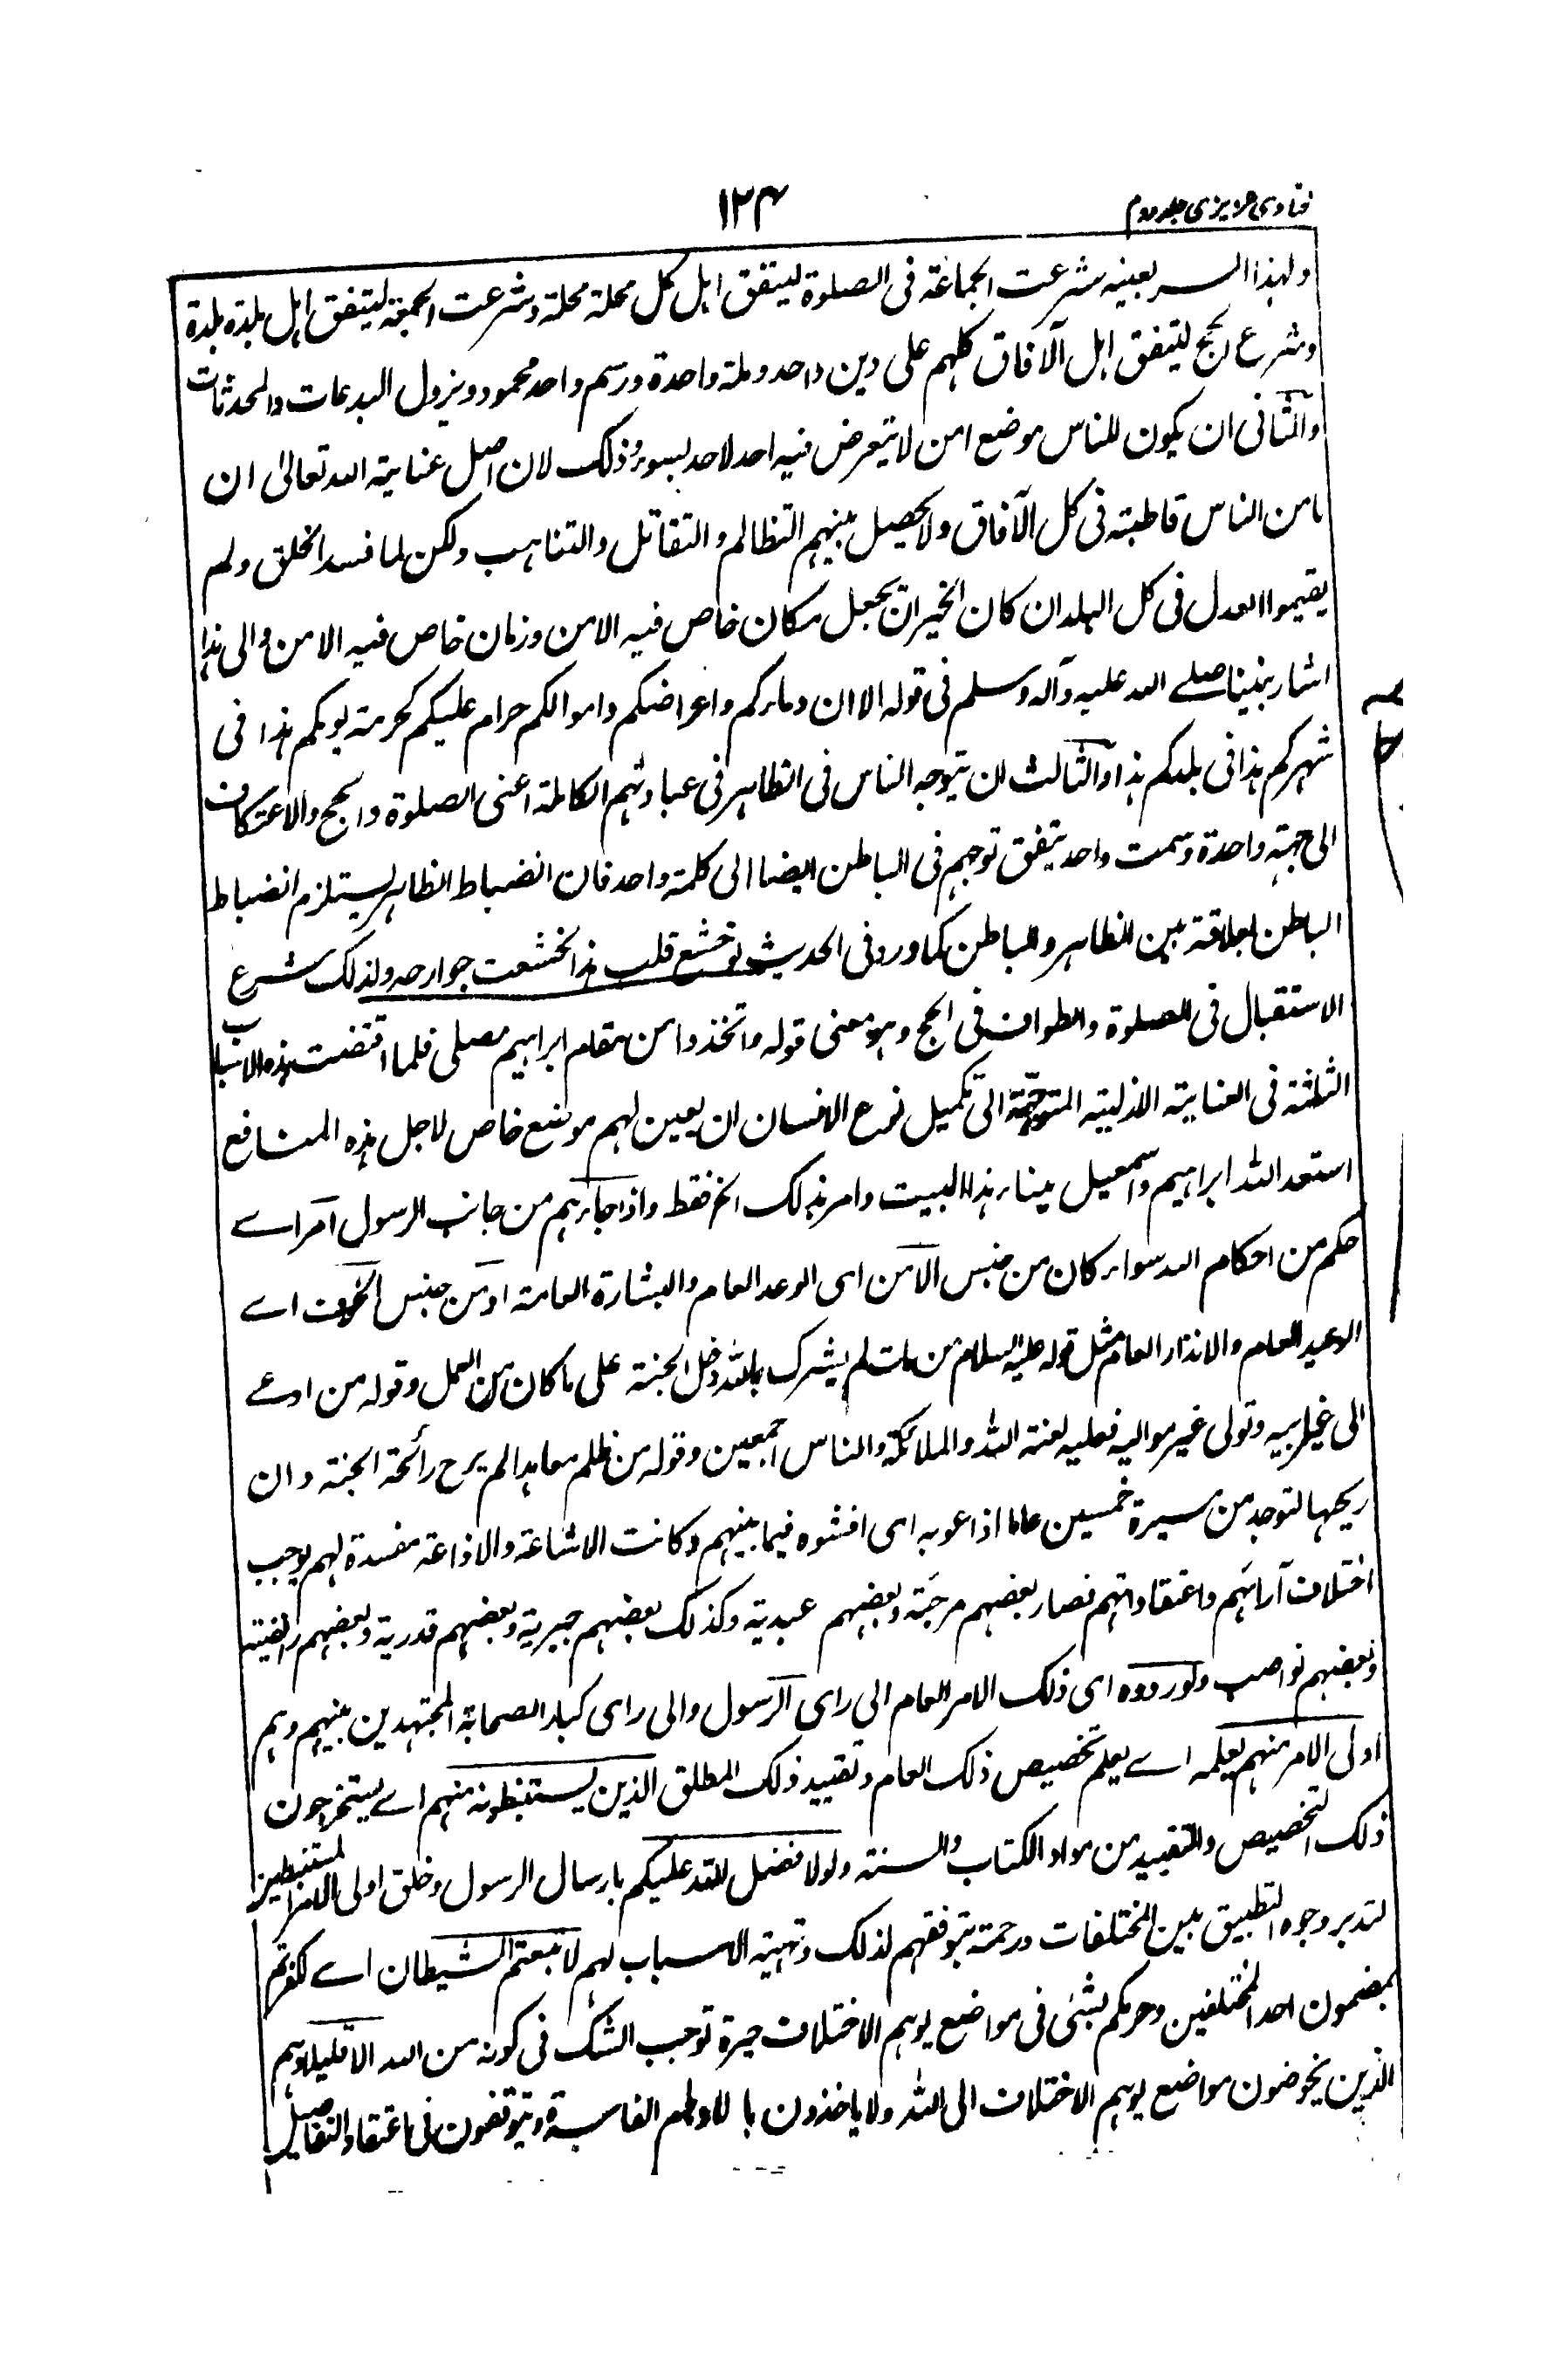 فتاوی عزیزی جلد دوم
۱۲۴
ولہذا السر بعینہ شرعت الجماعۃ فی الصلوۃ لیتفق اہل کل محلۃ محلۃ وشرعت الجمعۃ لیتفق اہل بلدۃ بلدۃ
وشرع لحج لیتفق اہل الآفاق کلہم علی دین واحد وملۃ واحدۃ ورسم واحد محمود ویزول البدعات والمحدثات
والثانی ان یکون للناس موضع امن لا یتعرض فیہ احد لاحد بسوء وذلک لان اصل عنایۃ اللہ تعالیٰ ان
یامن الناس قاطبۃ فی کل الآفاق ولا یحصل بینہم التظالم والتقاتل والتناہب ولکن لما فسد الخلق ولم
یقیموا العدل فی کل البلدان کان الخیر ان یجعل مکان خاص فیہ الامن وزمان خاص فیہ الامن والی ہذا
اشار نبینا صلے اللہ علیہ وآلہ وسلم فی قولہ الا ان دماءکم واعراضکم واموالکم حرام علیکم کحرمۃ یومکم ہذا فی
شہرکم ہذا فی بلدکم ہذا والثالث ان یتوجہ الناس فی الظاہر فی عباداتہم الکاملۃ اعنی الصلوۃ والحج والاعتکاف
الی جہۃ واحدۃ وسمت واحد یتفق توجہہم فی الباطن ایضا الی کلمۃ واحد فان انضباط الظاہر یستلزم انضباط
الباطن لعلاقۃ بین الظاہر والباطن کما ورد فی الحدیث لو خشع قلب ہذا لخشعت جوارحہ ولذلک شرع
الاستقبال فی الصلوۃ والطواف فی الحج وہو معنی قولہ واتخذوا من مقام ابراہیم مصلی فلما اقتضت ہذہ الاسباب
الثلثۃ فی العنایۃ الازلیۃ المتوجہۃ الی تکمیل نوع الانسان ان یعین لہم موضع خاص لاجل ہذہ المنافع
استعد اللہ ابراہیم واسمعیل ببناء ہذا البیت وامر بذلک الخ فقط واذا جاءہم من جانب الرسول امر اے
حکم من احکام اللہ سواء کان من جنس الامن ای الوعد العام والبشارۃ العامۃ او من جنس الخوف اے
الوعید العام والانذار العام مثل قولہ علیہ السلام من مات لم یشرک باللہ دخل الجنۃ علی ما کان من العمل وقولہ من ادعے
الی غیر ابیہ وتولی غیر موالیہ فعلیہ لعنۃ اللہ والملائکۃ والناس اجمعین وقولہ من ظلم معاہدا لم یرح رائحۃ الجنۃ وان
ریحہا لتوجد من مسیرۃ خمسین عاما اذاعوبہ ای افشوہ فیما بینہم وکانت الاشاعۃ والاذاعۃ مفسدۃ لہم یوجب
اختلاف آرائہم واعتقاداتہم فصار بعضہم مرجئۃ وبعضہم عبدیۃ وکذلک بعضہم جبریۃ وبعضہم قدریۃ وبعضہم رافضیۃ
وبعضہم نواصب ولو ردوہ ای ذلک الامر العام الی رای الرسول والی رای کبار الصحابۃ المجتہدین بینہم وہم
اولی الامر منہم یعلمہ اے یعلم تخصیص ذلک العام وتقیید ذلک المطلق الذین یستنبطونہ منہم اے یستخرجون
ذلک التخصیص والتقیید من مواد الکتاب والسنۃ ولولا فضل اللہ علیکم بارسال الرسول وخلق اولی الامر المستنبطین
لتدبر وجوہ التطبیق بین المختلفات ورحمۃ بتوفقہم لذلک وتہیۃ الاسباب لہم لاتبعتم الشیطان اے کفرتم
بمضمون احد المختلفین وحرمکم بشئی فی مواضع یوہم الاختلاف حیرۃ توجب الشک فی کونہ من اللہ الا قلیلا وہم
الذین یخوضون مواضع یوہم الاختلاف الی اللہ ولا یاخذون بالاوہام الفاسدۃ ویتوقفون فی اعتقاد التفاصیل